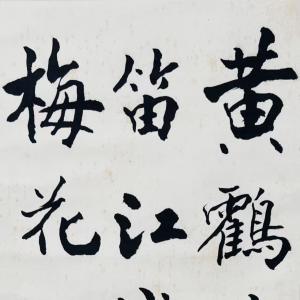 黄鶴
笛江
梅花